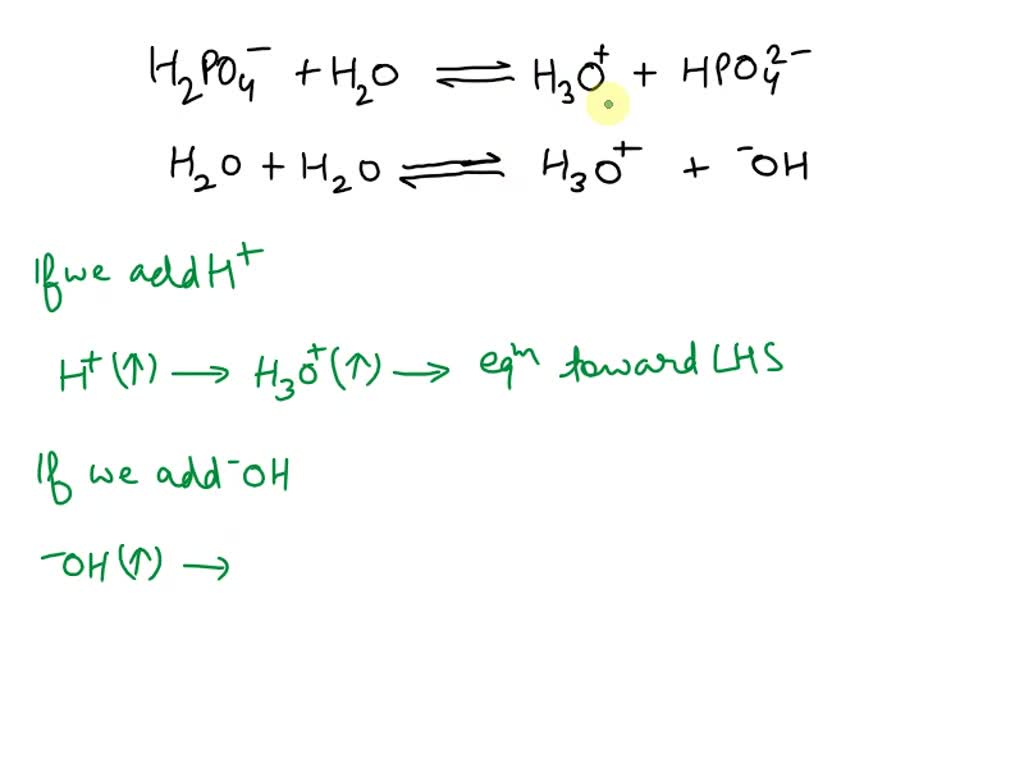 H₂PO₄⁻ + H₂O ⇌ H₃O⁺ + HPO₄²⁻
H₂O + H₂O ⇌ H₃O⁺ + ⁻OH
If we add H⁺
H⁺ (↑) → H₃O⁺ (↑) → eqᵐ toward LHS
If we add ⁻OH
⁻OH (↑) →